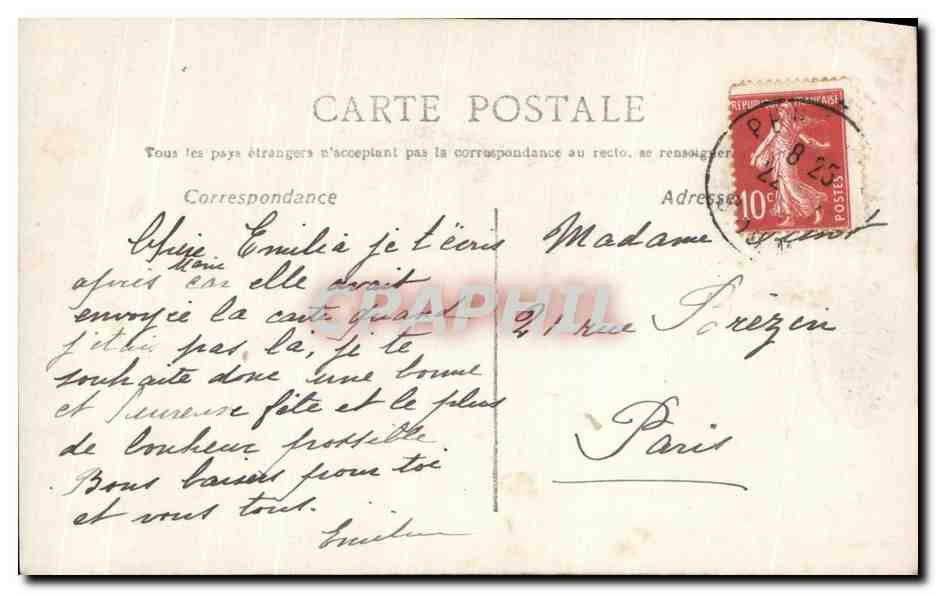 CARTE POSTALE
Tous les pays étrangers n'acceptant pas la correspondance au recto, se renseigner
Correspondance
Chère Emilia je t'écris
après Marie car elle avait
envoyée la carte quand
j'étais pas là, je te
souhaite donc une bonne
et heureuse fête et le plus
de bonheur possible
Bons baisers pour toi
et vous tous.
Adresse
Madame
21 rue Brézin
Paris
REPUBLIQUE FRANÇAISE
10 c
POSTES
8 25
22
CPAPHIL